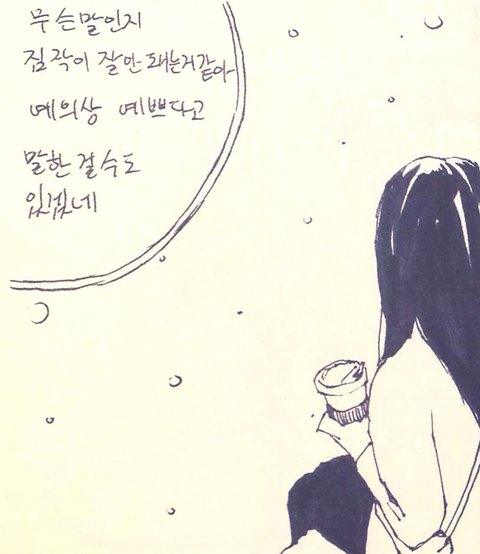 무슨말인지
짐작이 잘안돼는거같아
예의상 예쁘다고
말한 걸수도
있겠네